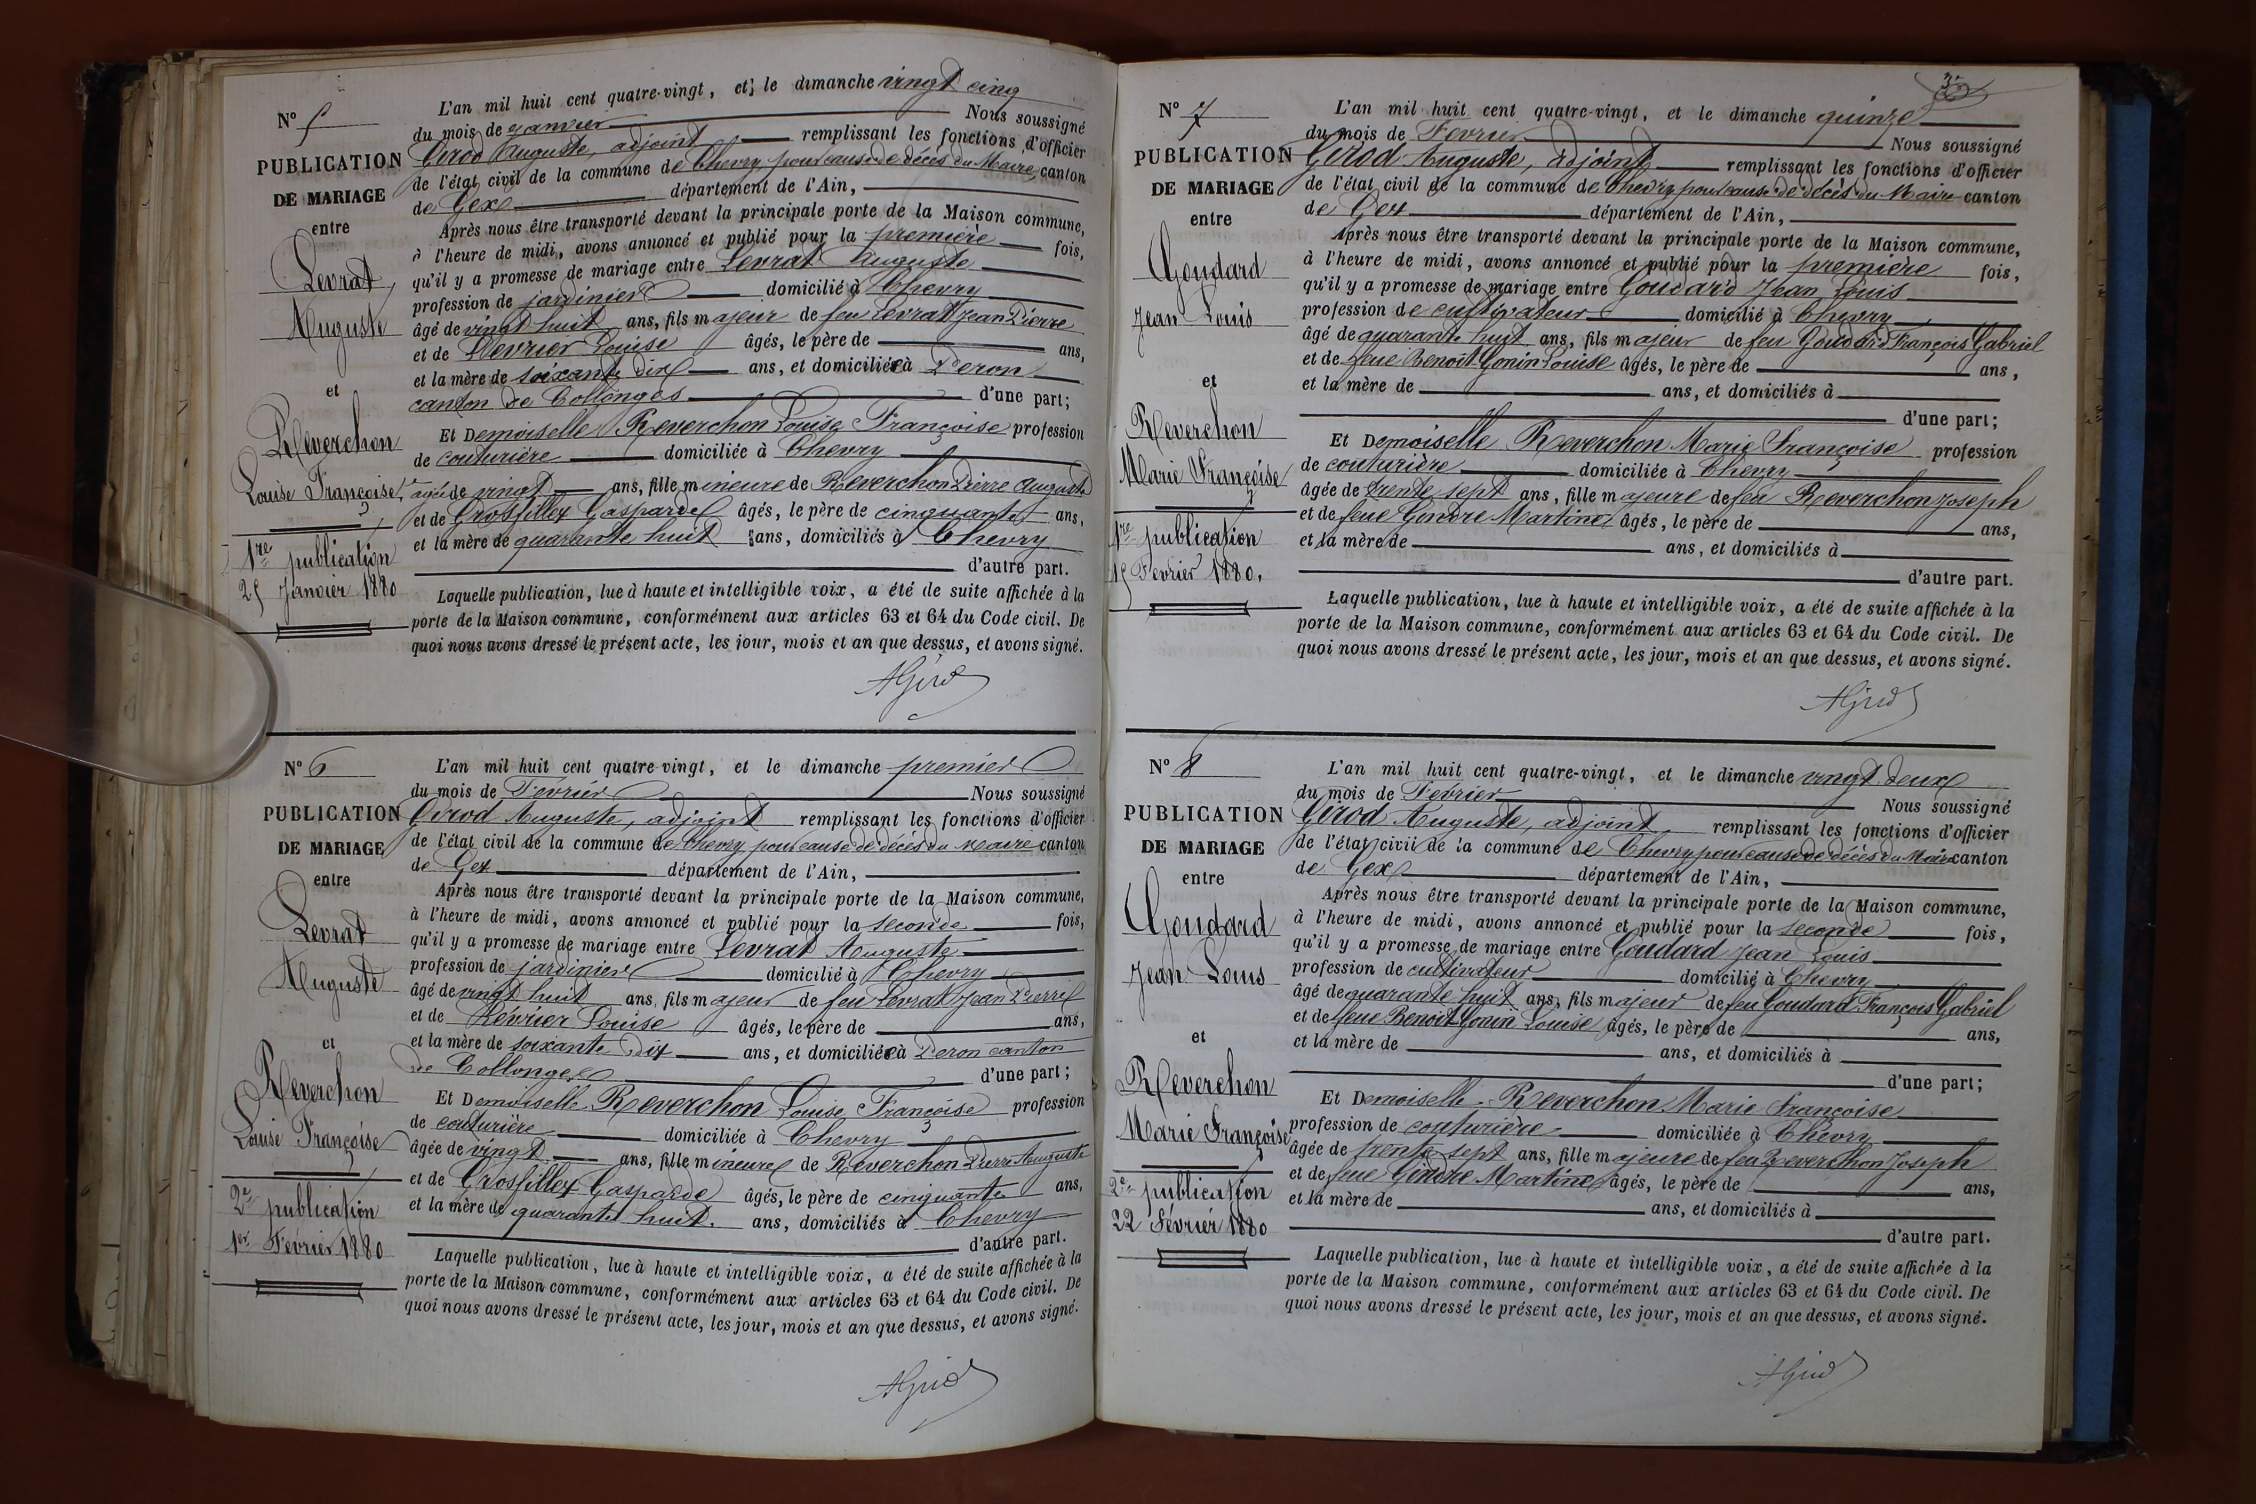 N° 5
PUBLICATION
DE MARIAGE
entre
Levrat,
Auguste
et
Reverchon
Louise Françoise
1re publication
25 Janvier 1880
L'an mil huit cent quatre-vingt, et le dimanche vingt cinq
du mois de Janvier Nous soussigné
Girod Auguste, adjoint remplissant les fonctions d'officier
de l'état civil de la commune de Chevry, pour cause de décès du Maire, canton
de Gex département de l'Ain,
Après nous être transporté devant la principale porte de la Maison commune,
à l'heure de midi, avons annoncé et publié pour la première fois,
qu'il y a promesse de mariage entre Levrat Auguste
profession de jardinier domicilié à Chevry
âgé de vingt huit ans, fils majeur de feu Levrat Jean Pierre
et de Louise âgés, le père de ans,
et la mère de soixante dix ans, et domiciliée à Péron
canton de Collonges d'une part;
Et Demoiselle Reverchon Louise Françoise profession
de couturière domiciliée à Chevry
âgée de vingt ans, fille mineure de Reverchon Pierre Auguste
et de Grosfilley Gasparde âgés, le père de cinquante ans,
et la mère de quarante huit ans, domiciliés à Chevry
d'autre part.
Laquelle publication, lue à haute et intelligible voix, a été de suite affichée à la
porte de la Maison commune, conformément aux articles 63 et 64 du Code civil. De
quoi nous avons dressé le présent acte, les jour, mois et an que dessus, et avons signé.
AGirod
N° 6
PUBLICATION
DE MARIAGE
entre
Levrat
Auguste
et
Reverchon
Louise Françoise
2e publication
1er Février 1880
L'an mil huit cent quatre vingt, et le dimanche premier
du mois de Février Nous soussigné
Girod Auguste, adjoint remplissant les fonctions d'officier
de l'état civil de la commune de Chevry, pour cause de décès du Maire canton
de Gex département de l'Ain,
Après nous être transporté devant la principale porte de la Maison commune,
à l'heure de midi, avons annoncé et publié pour la seconde fois,
qu'il y a promesse de mariage entre Levrat Auguste
profession de jardinier domicilié à Chevry
âgé de vingt huit ans, fils majeur de feu Levrat Jean Pierre
et de Louise âgés, le père de ans,
et la mère de soixante dix ans, et domiciliée à Péron canton
de Collonges d'une part;
Et Demoiselle Reverchon Louise Françoise profession
de couturière domiciliée à Chevry
âgée de vingt ans, fille mineure de Reverchon Pierre Auguste
et de Grosfilley Gasparde âgés, le père de cinquante ans,
et la mère de quarante huit. ans, domiciliés à Chevry
d'autre part.
Laquelle publication, lue à haute et intelligible voix, a été de suite affichée à la
porte de la Maison commune, conformément aux articles 63 et 64 du Code civil. De
quoi nous avons dressé le présent acte, les jour, mois et an que dessus, et avons signé.
AGirod
N° 7
PUBLICATION
DE MARIAGE
entre
Goudard
Jean Louis
et
Reverchon
Marie Françoise
1re publication
15 Février 1880.
L'an mil huit cent quatre-vingt, et le dimanche quinze
du mois de Février Nous soussigné
Girod Auguste, adjoint remplissant les fonctions d'officier
de l'état civil de la commune de Chevry pour cause de décès du Maire canton
de Gex département de l'Ain,
Après nous être transporté devant la principale porte de la Maison commune,
à l'heure de midi, avons annoncé et publié pour la première fois,
qu'il y a promesse de mariage entre Goudard Jean Louis
profession de cultivateur domicilié à Chevry
âgé de quarante huit ans, fils majeur de feu Goudard François Gabriel
et de feue Benoit Gonin Louise âgés, le père de ans,
et la mère de ans, et domiciliés à
d'une part;
Et Demoiselle Reverchon Marie Françoise profession
de couturière domiciliée à Chevry
âgée de trente sept ans, fille majeure de feu Reverchon Joseph
et de feue Gindre Martine âgés, le père de ans,
et la mère de ans, et domiciliés à
d'autre part.
Laquelle publication, lue à haute et intelligible voix, a été de suite affichée à la
porte de la Maison commune, conformément aux articles 63 et 64 du Code civil. De
quoi nous avons dressé le présent acte, les jour, mois et an que dessus, et avons signé.
AGirod
N° 8
PUBLICATION
DE MARIAGE
entre
Goudard
Jean Louis
et
Reverchon
Marie Françoise
2e publication
22 Février 1880
L'an mil huit cent quatre-vingt, et le dimanche vingt deux
du mois de Février Nous soussigné
Girod Auguste, adjoint remplissant les fonctions d'officier
de l'état civil de la commune de Chevry pour cause de décès du Maire canton
de Gex département de l'Ain,
Après nous être transporté devant la principale porte de la Maison commune,
à l'heure de midi, avons annoncé et publié pour la seconde fois,
qu'il y a promesse de mariage entre Goudard Jean Louis
profession de cultivateur domicilié à Chevry
âgé de quarante huit ans, fils majeur de feu Goudard François Gabriel
et de feue Benoit Gonin Louise âgés, le père de ans,
et la mère de ans, et domiciliés à
d'une part;
Et Demoiselle Reverchon Marie Françoise
profession de couturière domiciliée à Chevry
âgée de trente sept ans, fille majeure de feu Reverchon Joseph
et de feue Gindre Martine âgés, le père de ans,
et la mère de ans, et domiciliés à
d'autre part.
Laquelle publication, lue à haute et intelligible voix, a été de suite affichée à la
porte de la Maison commune, conformément aux articles 63 et 64 du Code civil. De
quoi nous avons dressé le présent acte, les jour, mois et an que dessus, et avons signé.
AGirod